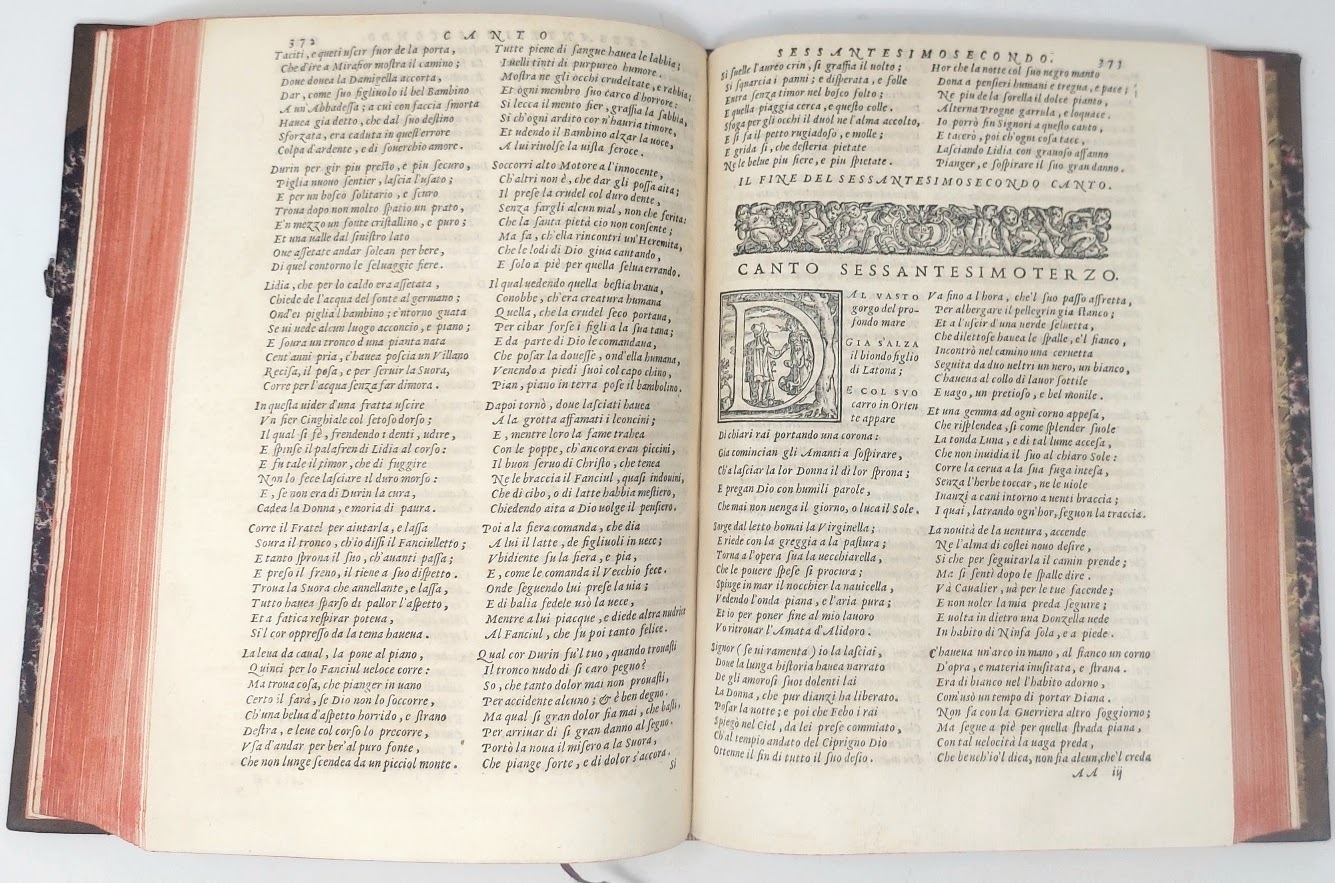 372
CANTO
Taciti, e queti uscir fuor de la porta,
Che d'ire a Mirafior mostra il camino;
Doue douea la Damigella accorta,
Dar, come suo figliuolo il bel Bambino
A un'Abbadessa; a cui con faccia smorta
Hauea gia detto, che dal suo destino
Sforzata, era caduta in quest'errore
Colpa d'ardente, e di souerchio amore.
Durin per gir piu presto, e piu securo,
Piglia nuouo sentier, lascia l'usato;
E per un bosco solitario, e scuro
Troua dopo non molto spatio un prato,
E'n mezzo un fonte cristallino, e puro;
Et una ualle dal sinistro lato
Oue assetate andar solean per bere,
Di quel contorno le seluaggie fiere.
Lidia, che per lo caldo era assetata,
Chiede de l'acqua del fonte al germano;
Ond'ei piglia'l bambino; e'ntorno guata
Se ui uede alcun luogo acconcio, e piano;
E soura un tronco d'una pianta nata
Cent'anni pria, c'hauea poscia un Villano
Recisa, il posa, e per seruir la Suora,
Corre per l'acqua senza far dimora.
In questa uider d'una fratta uscire
Vn fier Cinghiale col setoso dorso;
Il qual si fè, frendendo i denti, udire,
E spinse il palafren di Lidia al corso:
E fu tale il timor, che di fuggire
Non lo fece lasciare il duro morso:
E, se non era di Durin la cura,
Cadea la Donna, e moria di paura.
Corre il Fratel per aiutarla, e lassa
Soura il tronco, ch'io dissi il Fanciulletto;
E tanto sprona il suo, ch'auanti passa;
E preso il freno, il tiene a suo dispetto.
Troua la Suora che annellante, e lassa,
Tutto hauea sparso di pallor l'aspetto,
Et a fatica respirar poteua,
Si'l cor oppresso da la tema haueua.
La leua da caual, la pone al piano,
Quinci per lo Fanciul ueloce corre:
Ma troua cosa, che pianger in uano
Certo il farà, se Dio non lo soccorre,
Ch'una belua d'aspetto horrido, e strano
Destra, e leue col corso lo precorre,
Vsa d'andar per ber'al puro fonte,
Che non lunge scendea da un picciol monte.
Tutte piene di sangue hauea le labbia;
I uelli tinti di purpureo humore.
Mostra ne gli occhi crudeltate, e rabbia;
Et ogni membro suo carco d'horrore:
Si lecca il mento fier, graffia la sabbia,
Si ch'ogni ardito cor n'hauria timore,
Et udendo il Bambino alzar la uoce,
A lui riuolse la uista feroce.
Soccorri alto Motore a l'innocente,
Ch'altri non è, che dar gli possa aita;
Il prese la crudel col duro dente,
Senza fargli alcun mal, non che ferita:
Che la santa pietà cio non consente;
Ma fa, ch'ella rincontri un'Heremita,
Che le lodi di Dio giua cantando,
E solo a piè per quella selua errando.
Il qual uedendo quella bestia braua,
Conobbe, ch'era creatura humana
Quella, che la crudel seco portaua,
Per cibar forse i figli a la sua tana;
E da parte di Dio le comandaua,
Che posar la douesse, ond'ella humana,
Venendo a piedi suoi col capo chino,
Pian, piano in terra pose il bambolino.
Dapoi tornò, doue lasciati hauea
A la grotta affamati i leoncini;
E, mentre loro la fame trahea
Con le poppe, ch'ancora eran piccini,
Il buon seruo di Christo, che tenea
Ne le braccia il Fanciul, quasi indouini,
Che di cibo, o di latte habbia mestiero,
Chiedendo aita a Dio uolge il pensiero.
Poi a la fiera comanda, che dia
A lui il latte, de figliuoli in uece;
Vbidiente fu la fiera, e pia,
E, come le comanda il Vecchio fece.
Onde seguendo lui prese la uia;
E di balia fedele usò la uece,
Mentre a lui piacque, e diede altra nudrice
Al Fanciul, che fu poi tanto felice.
Qual cor Durin fu'l tuo, quando trouasti
Il tronco nudo di si caro pegno?
So, che tanto dolor mai non prouasti,
Per accidente alcuno; & è ben degno.
Ma qual si gran dolor fia mai, che basti,
Per arriuar di si gran danno al segno.
Portò la noua il misero a la Suora,
Che piange forte, e di dolor s'accora.
Si
SESSANTESIMOSECONDO.
373
Si suelle l'aureo crin, si graffia il uolto;
Si squarcia i panni; e disperata, e folle
Entra senza timor nel bosco folto;
E quella piaggia cerca, e questo colle.
Sfoga per gli occhi il duol ne l'alma accolto,
E si fa il petto rugiadoso, e molle;
E grida si, che desteria pietate
Ne le belue piu fiere, e piu spietate.
Hor che la notte col suo negro manto
Dona a pensieri humani e tregua, e pace;
Ne piu de la sorella il dolce pianto,
Alterna Progne garrula, e loquace.
Io porrò fin Signori a questo canto,
E tacerò, poi ch'ogni cosa tace,
Lasciando Lidia con grauoso affanno
Pianger, e sospirare il suo gran danno.
IL FINE DEL SESSANTESIMOSECONDO CANTO.
CANTO SESSANTESIMOTERZO.
DAL VASTO
gorgo del pro-
fondo mare
GIA S'ALZA
il biondo figlio
di Latona;
E COL SVO
carro in Orien
te appare
Di chiari rai portando una corona:
Gia comincian gli Amanti a sospirare,
Ch'a lasciar la lor Donna il dì lor sprona;
E pregan Dio con humili parole,
Che mai non uenga il giorno, o luca il Sole.
Sorge dal letto homai la Virginella;
E riede con la greggia a la pastura;
Torna a l'opera sua la uecchiarella,
Che le pouere spese si procura;
Spinge in mar il nocchier la nauicella,
Vedendo l'onda piana, e l'aria pura;
Et io per poner fine al mio lauoro
Vo ritrouar l'Amata d'Alidoro.
Signor (se ui ramenta) io la lasciai,
Doue la lunga historia hauea narrato
De gli amorosi suoi dolenti lai
La Donna, che pur dianzi ha liberato.
Posar la notte; e poi che Febo i rai
Spiegò nel Ciel, da lei prese commiato,
Ch'al tempio andato del Ciprigno Dio
Ottenne il fin di tutto il suo desio.
Va fino a l'hora, che'l suo passo affretta,
Per albergare il pellegrin gia stanco;
Et a l'uscir d'una uerde seluetta,
Che dilettose hauea le spalle, e'l fianco,
Incontrò nel camino una ceruetta
Seguita da duo ueltri un nero, un bianco,
C'haueua al collo di lauor sottile
E uago, un pretioso, e bel monile.
Et una gemma ad ogni corno appesa,
Che risplendea, si come splender suole
La tonda Luna, e di tal lume accesa,
Che non inuidia il suo al chiaro Sole:
Corre la cerua a la sua fuga intesa,
Senza l'herbe toccar, ne le uiole
Inanzi a cani intorno a uenti braccia;
I quai, latrando ogn'hor, seguon la traccia.
La nouità de la uentura, accende
Ne l'alma di costei nouo desire,
Si che per seguitarla il camin prende;
Ma si sentì dopo le spalle dire.
Và Caualier, uà per le tue facende;
E non uoler la mia preda seguire;
E uolta in dietro una Donzella uede
In habito di Ninfa sola, e a piede.
C'haueua un'arco in mano, al fianco un corno
D'opra, e materia inusitata, e strana.
Era di bianco nel l'habito adorno,
Com'usò un tempo di portar Diana.
Non fa con la Guerriera altro soggiorno;
Ma segue a piè per quella strada piana,
Con tal uelocità la uaga preda,
Che bench'io'l dica, non fia alcun, che'l creda
AA iij